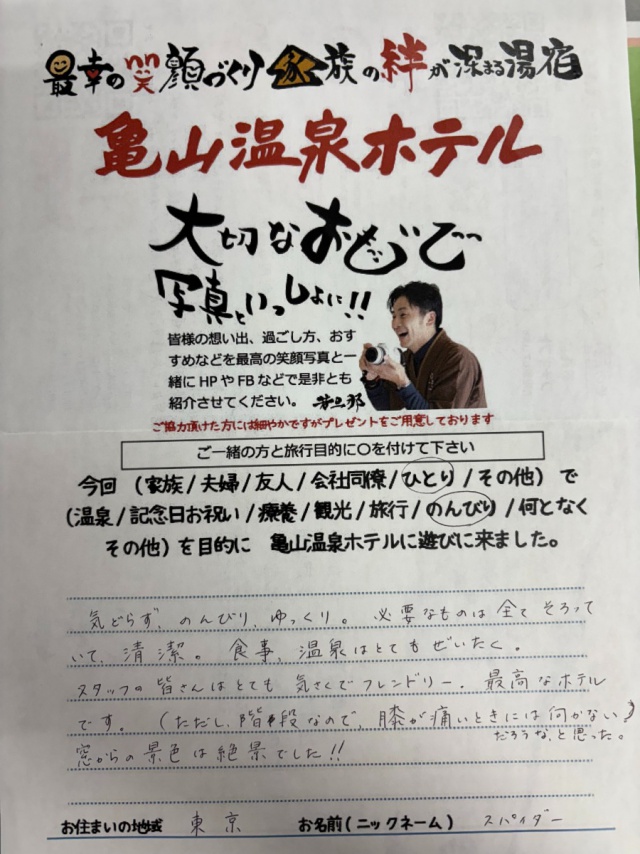 最幸の笑顔づくり 家族の絆が深まる湯宿
亀山温泉ホテル
大切なおもいで
写真といっしょに!!
皆様の想い出、過ごし方、おす
すめなどを最高の笑顔写真と一
緒にHPやFBなどで是非とも
紹介させてください。 若旦那
ご協力頂けた方には細やかですがプレゼントをご用意しております
ご一緒の方と旅行目的に〇を付けて下さい
今回 (家族/夫婦/友人/会社同僚/ひとり/その他)で
(温泉/記念日お祝い/療養/観光/旅行/のんびり/何となく
その他)を目的に 亀山温泉ホテルに遊びに来ました。
気どらず、のんびり、ゆっくり。必要なものは全てそろって
いて、清潔。食事、温泉はとてもぜいたく。
スタッフの皆さんはとても気さくでフレンドリー。最高なホテル
です。(ただし、階段なので、膝が痛いときには何かない
だろうな、と思った。)
窓からの景色は絶景でした!!
お住まいの地域 東京 お名前(ニックネーム) スパイダー